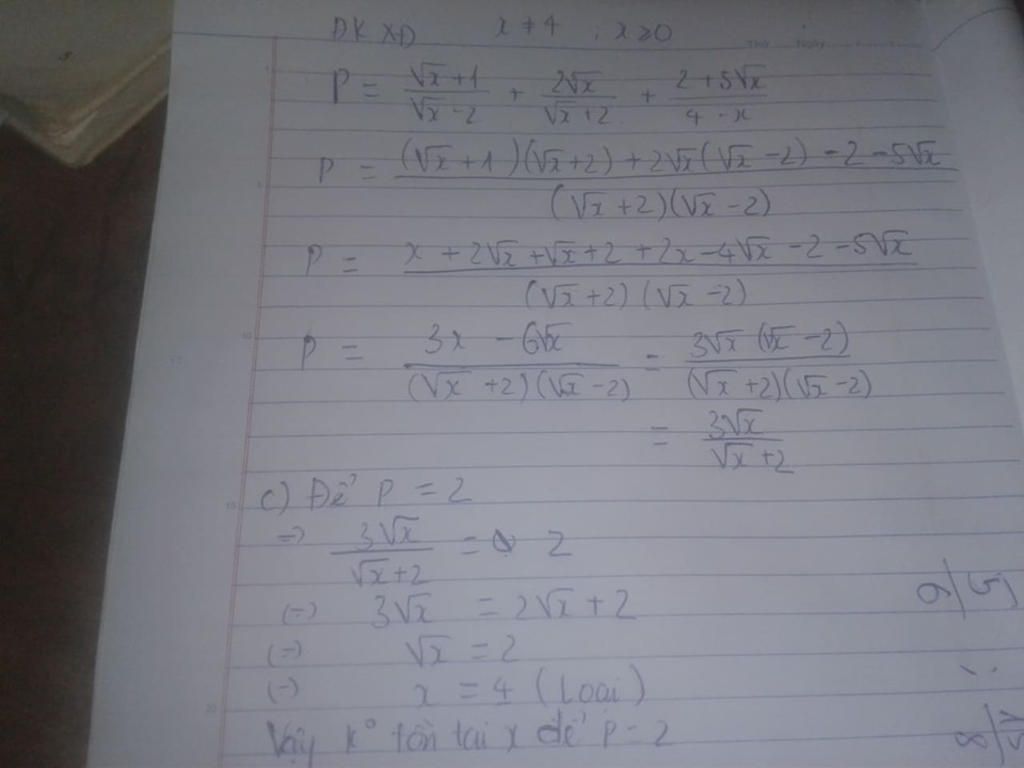 ĐKXĐ x ≠ 4 ; x ≥ 0
P = (√x + 1)/(√x - 2) + 2√x/(√x + 2) + (2 + 5√x)/(4 - x)
P = ((√x + 1)(√x + 2) + 2√x(√x - 2) - 2 - 5√x)/((√x + 2)(√x - 2))
P = (x + 2√x + √x + 2 + 2x - 4√x - 2 - 5√x)/((√x + 2)(√x - 2))
P = (3x - 6√x)/((√x + 2)(√x - 2)) = (3√x(√x - 2))/((√x + 2)(√x - 2))
= 3√x/(√x + 2)
c) Để P = 2
=> 3√x/(√x + 2) = 2
(=) 3√x = 2√x + 2
(=) √x = 2
(=) x = 4 (loại)
Vậy k° tồn tại x để P = 2